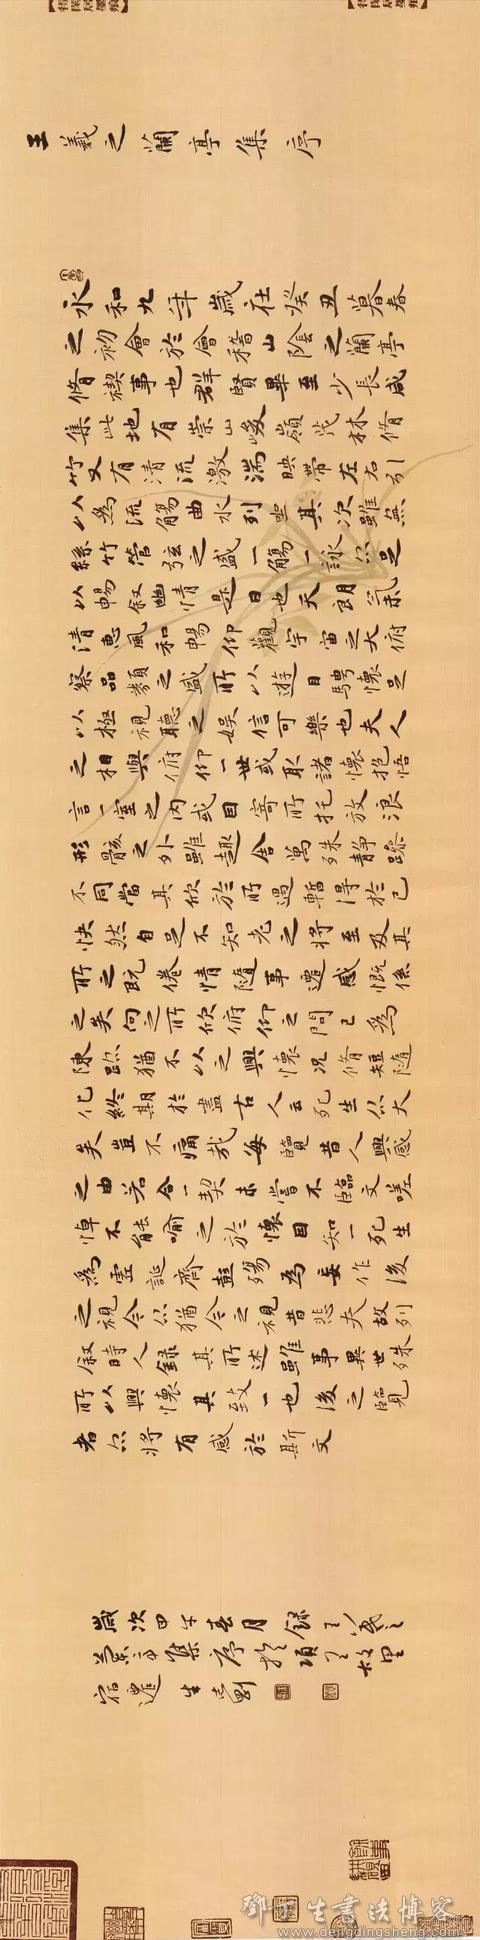 王羲之蘭亭集序
永和九年歲在癸丑暮春
之初會於會稽山陰之蘭亭
脩禊事也群賢畢至少長咸
集此地有崇山峻嶺茂林脩
竹又有清流激湍映帶左右引
以為流觴曲水列坐其次雖無
絲竹管弦之盛一觴一詠亦足
以暢敘幽情是日也天朗氣
清惠風和暢仰觀宇宙之大俯
察品類之盛所以遊目騁懷足
以極視聽之娛信可樂也夫人
之相與俯仰一世或取諸懷抱悟
言一室之內或因寄所托放浪
形骸之外雖趣舍萬殊靜躁
不同當其欣於所遇暫得於己
快然自足不知老之將至及其
所之既倦情隨事遷感慨係
之矣向之所欣俯仰之間已為
陳跡猶不以之興懷況脩短隨
化終期於盡古人云死生亦大
矣豈不痛哉每覽昔人興感
之由若合一契未嘗不臨文嗟
悼不能喻之於懷固知一死生
為虛誕齊彭殤為妄作後
之視今亦猶今之視昔悲夫故列
敘時人錄其所述雖事異世殊
所以興懷其致一也後之覽
者亦將有感於斯文
歲次甲午春月錄王羲之
蘭亭集序於項王故里
宿遷
生書法博客
www.dengdingsheng.com